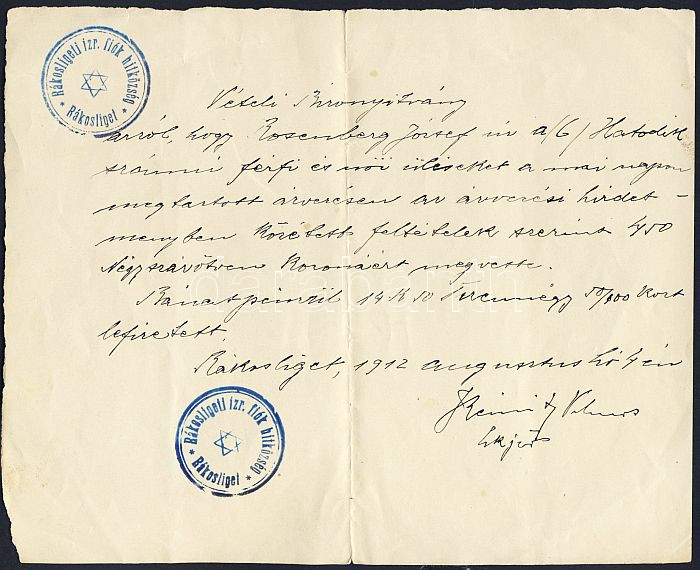 Rákosligeti izr. fiók hitközség
* Rákosliget *
Vételi Bizonyitvány
arról, hogy Rosenberg József úr a /6/ Hatodik
számú férfi és női üléseket a mai napon
megtartott árverésen az árverési hirdet-
ményben közétett feltételek szerint 450
Négyszázötven Koronáért megvette.
Bánatpénzül 14 K 50 50/100 Kort
lefizetett.
Rákosliget, 1912 augusztus hó 4 én
Vilmos
Rákosligeti izr. fiók hitközség
* Rákosliget *
darabanth